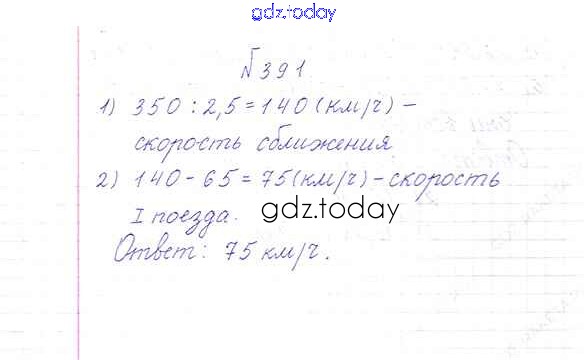 gdz.today
№391
1) 350 : 2,5 = 140 (км/ч) –
скорость сближения
2) 140 - 65 = 75 (км/ч) – скорость
I поезда.
gdz.today
Ответ: 75 км/ч.